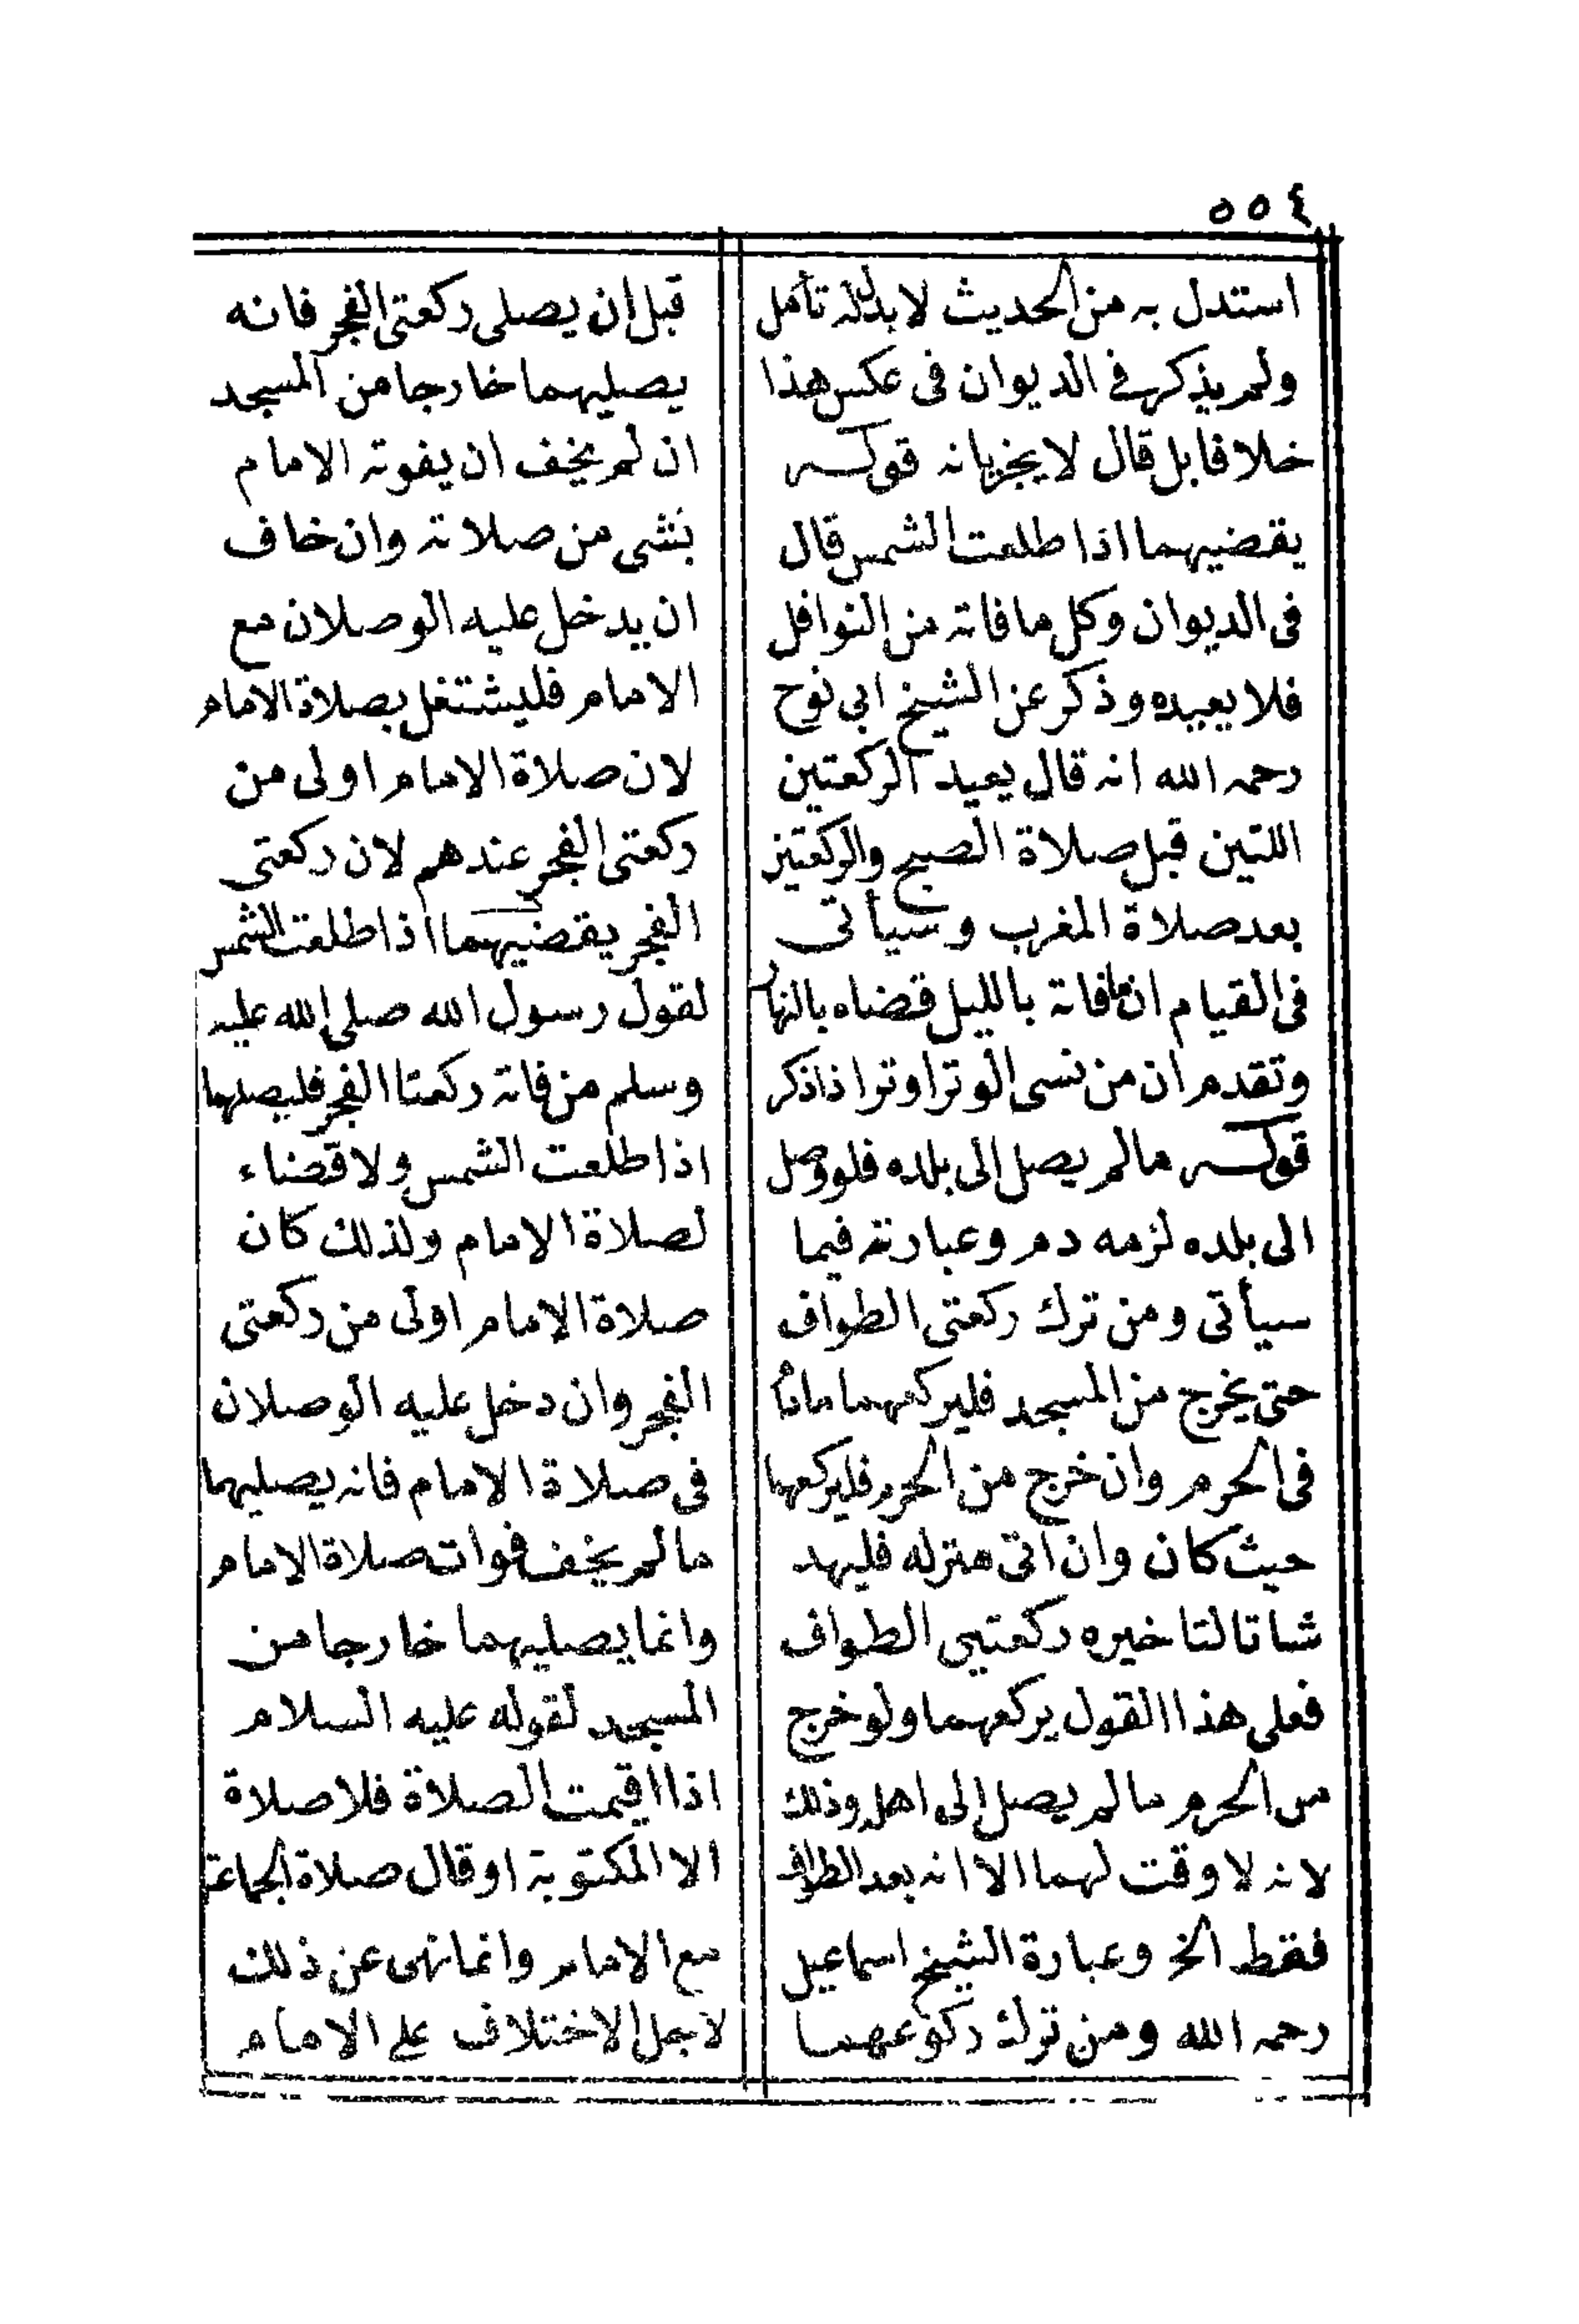 ٥٥٤
استدل به من الحديث لا يدل له تأمل
ولم يذكر في الديوان في عكس هذا
خلافا بل قال لا يجزيانه قوله
يقضيهما اذا طلعت الشمس قال
في الديوان وكل ما فاته من النوافل
فلا يعيده وذكر عن الشيخ ابي نوح
رحمه الله انه قال يعيد الركعتين
اللتين قبل صلاة الصبح والركعتين
بعد صلاة المغرب وسيأتى
في القيام ان ما فاته بالليل قضاه بالنهار
وتقدم ان من نسى الوتر اوترا ذا ذكر
قوله ما لم يصل الى بلده فلو وصل
الى بلده لزمه دم وعبارته فيما
سيأتى ومن ترك ركعتى الطواف
حتى يخرج من المسجد فليركعهما مادام
في الحرم وان خرج من الحرم فليركعهما
حيث كان وان اتى منزله فليهد
شاتا لتاخيره ركعتيى الطواف
فعلى هذا القول يركعهما ولو خرج
من الحرم ما لم يصل الى اهله وذلك
لانه لا وقت لهما الا انه بعد الطواف
فقط الخ وعبارة الشيخ اسماعيل
رحمه الله ومن ترك ركوعهما
قبل ان يصلى ركعتى الفجر فانه
يصليهما خارجا من المسجد
ان لم يخف ان يفوته الامام
بشى من صلاته وان خاف
ان يدخل عليه الوصلان مع
الامام فليشتغل بصلاة الامام
لان صلاة الامام اولى من
ركعتى الفجر عندهم لان ركعتى
الفجر يقضيهما اذا طلعت الشمس
لقول رسول الله صلى الله عليه
وسلم من فاته ركعتا الفجر فليصلهما
اذا طلعت الشمس ولا قضاء
لصلاة الامام ولذلك كان
صلاة الامام اولى من ركعتى
الفجر وان دخل عليه الوصلان
في صلاة الامام فانه يصليهما
ما لم يخف فوات صلاة الامام
وانما يصليهما خارجا من
المسجد لقوله عليه السلام
اذا اقيمت الصلاة فلا صلاة
الا المكتوبة او قال صلاة الجماعة
مع الامام وانما نهى عن ذلك
لاجل الاختلاف على الامام